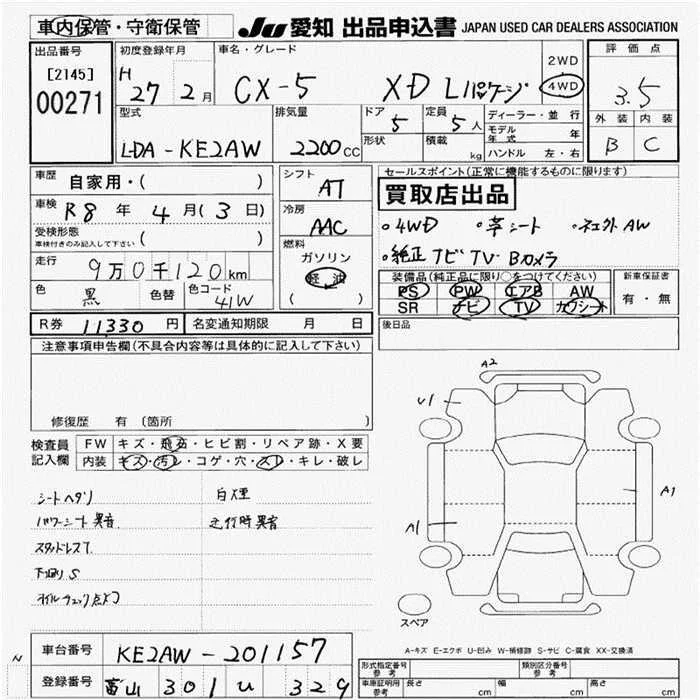 車内保管・守衛保管
JU 愛知 出品申込書 JAPAN USED CAR DEALERS ASSOCIATION
出品番号
[2145]
00271
初度登録年月
H 27 2月
車名・グレード
CX-5 XD Lパッケージ
2WD
4WD
評価点
3.5
外装 内装
B C
型式
LDA-KE2AW
排気量
2200CC
ドア
5
形状
定員
5人
積載
kg
ディーラー・並行
モデル年式 年
ハンドル 左・右
車歴
自家用・( )
車検
R8年 4月(3日)
受検形態
車検付きのみ記入して下さい ( )
走行
9万0千120km
色
黒
色替
色コード
41W
シフト
AT
冷房
AAC
燃料
ガソリン
軽油
( )
セールスポイント(正常に機能するものに限ります)
買取店出品
・4WD ・革シート ・社外AW
・純正ナビ TV Bカメラ
装備品(純正品に限り○をつけてください)
PS PW エアB AW
SR ナビ TV カワシート
新車保証書
有・無
R券 11,330円
名変通知期限 月 日
後日品
注意事項申告欄(不具合内容等は具体的に記入して下さい)
修復歴 有 (箇所 )
検査員
記入欄
FW キズ・飛石・ヒビ割・リペア跡・X要
内装 キズ・汚レ・コゲ・穴・スレ・キレ・破レ
シートヘタリ
パワーシート異音
スタッドレスT
下廻りS
オイルチェック点灯
白煙
走行時異音
A2
U1
A1
A1
スペア
A-キズ E-エクボ U-凹み W-補修跡 S-サビ C-腐食 XX-交換済
車台番号
KE2AW-201157
登録番号
富山 301 U 329
形式指定番号
参考
類別区分番号
参考
車庫証明用
参考
長さ cm
幅 cm
高さ cm